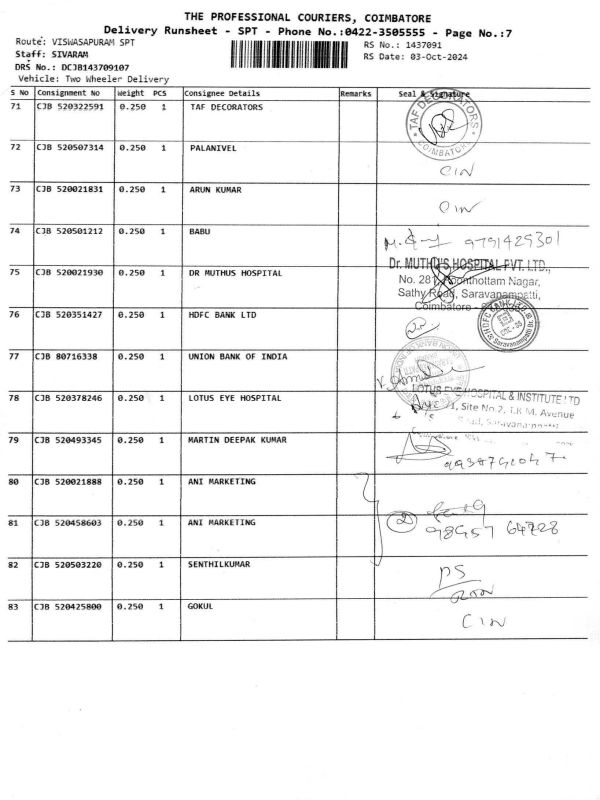 THE PROFESSIONAL COURIERS, COIMBATORE
Delivery Runsheet - SPT - Phone No.:0422-3505555 - Page No.:7
Route: VISWASAPURAM SPT
RS No.: 1437091
Staff: SIVARAM
RS Date: 03-Oct-2024
DRS No.: DCJB143709107
Vehicle: Two Wheeler Delivery
S No Consignment No Weight PCS Consignee Details Remarks Seal & Signature
71 CJB 520322591 0.250 1 TAF DECORATORS
TAF DECORATORS
COIMBATORE
72 CJB 520507314 0.250 1 PALANIVEL
CIN
73 CJB 520021831 0.250 1 ARUN KUMAR
CIN
74 CJB 520501212 0.250 1 BABU
9791429301
75 CJB 520021930 0.250 1 DR MUTHUS HOSPITAL
Dr. MUTHU'S HOSPITAL PVT. LTD.,
No. 281, Poonthottam Nagar,
Sathy Road, Saravanampatti,
Coimbatore -
76 CJB 520351427 0.250 1 HDFC BANK LTD
HDFC BANK LTD
Saravanampatti
77 CJB 80716338 0.250 1 UNION BANK OF INDIA
78 CJB 520378246 0.250 1 LOTUS EYE HOSPITAL
LOTUS EYE HOSPITAL & INSTITUTE LTD
1, Site No.2, T.K.M. Avenue
Road, Saravanampatti
79 CJB 520493345 0.250 1 MARTIN DEEPAK KUMAR
80 CJB 520021888 0.250 1 ANI MARKETING
81 CJB 520458603 0.250 1 ANI MARKETING
2
98957 64728
82 CJB 520503220 0.250 1 SENTHILKUMAR
PS
83 CJB 520425800 0.250 1 GOKUL
CIN